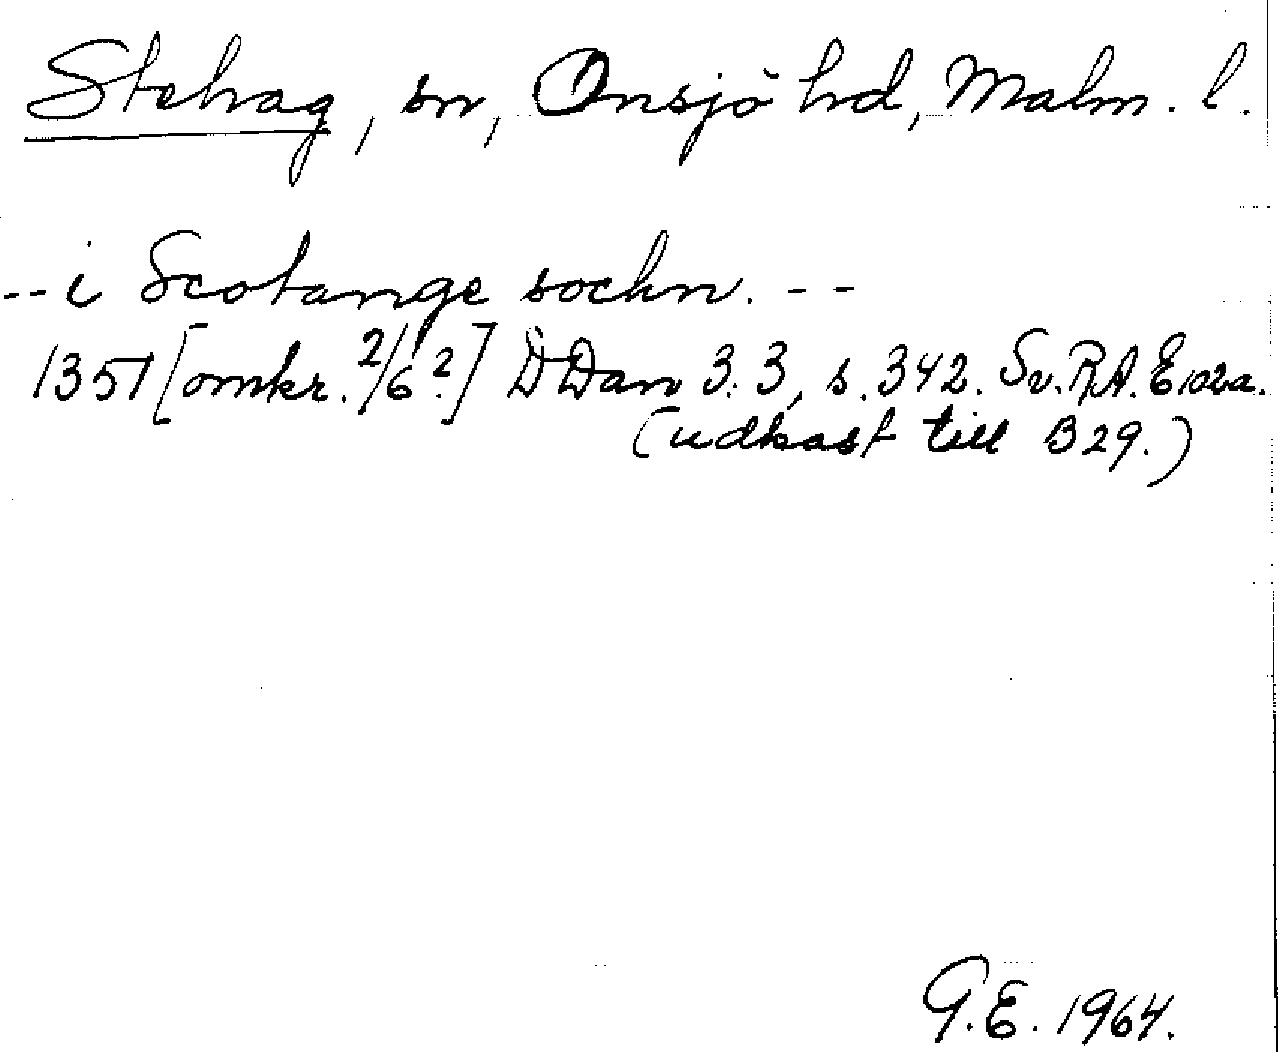 Stehag, sn, Onsjö hd, Malm. l.
-- i Scotange sochn. --
1351 [omkr. 2/6?] DDan 3:3, s. 342. Sv. RA. E 102a.
(udkast till B 29.)
G.E. 1964.